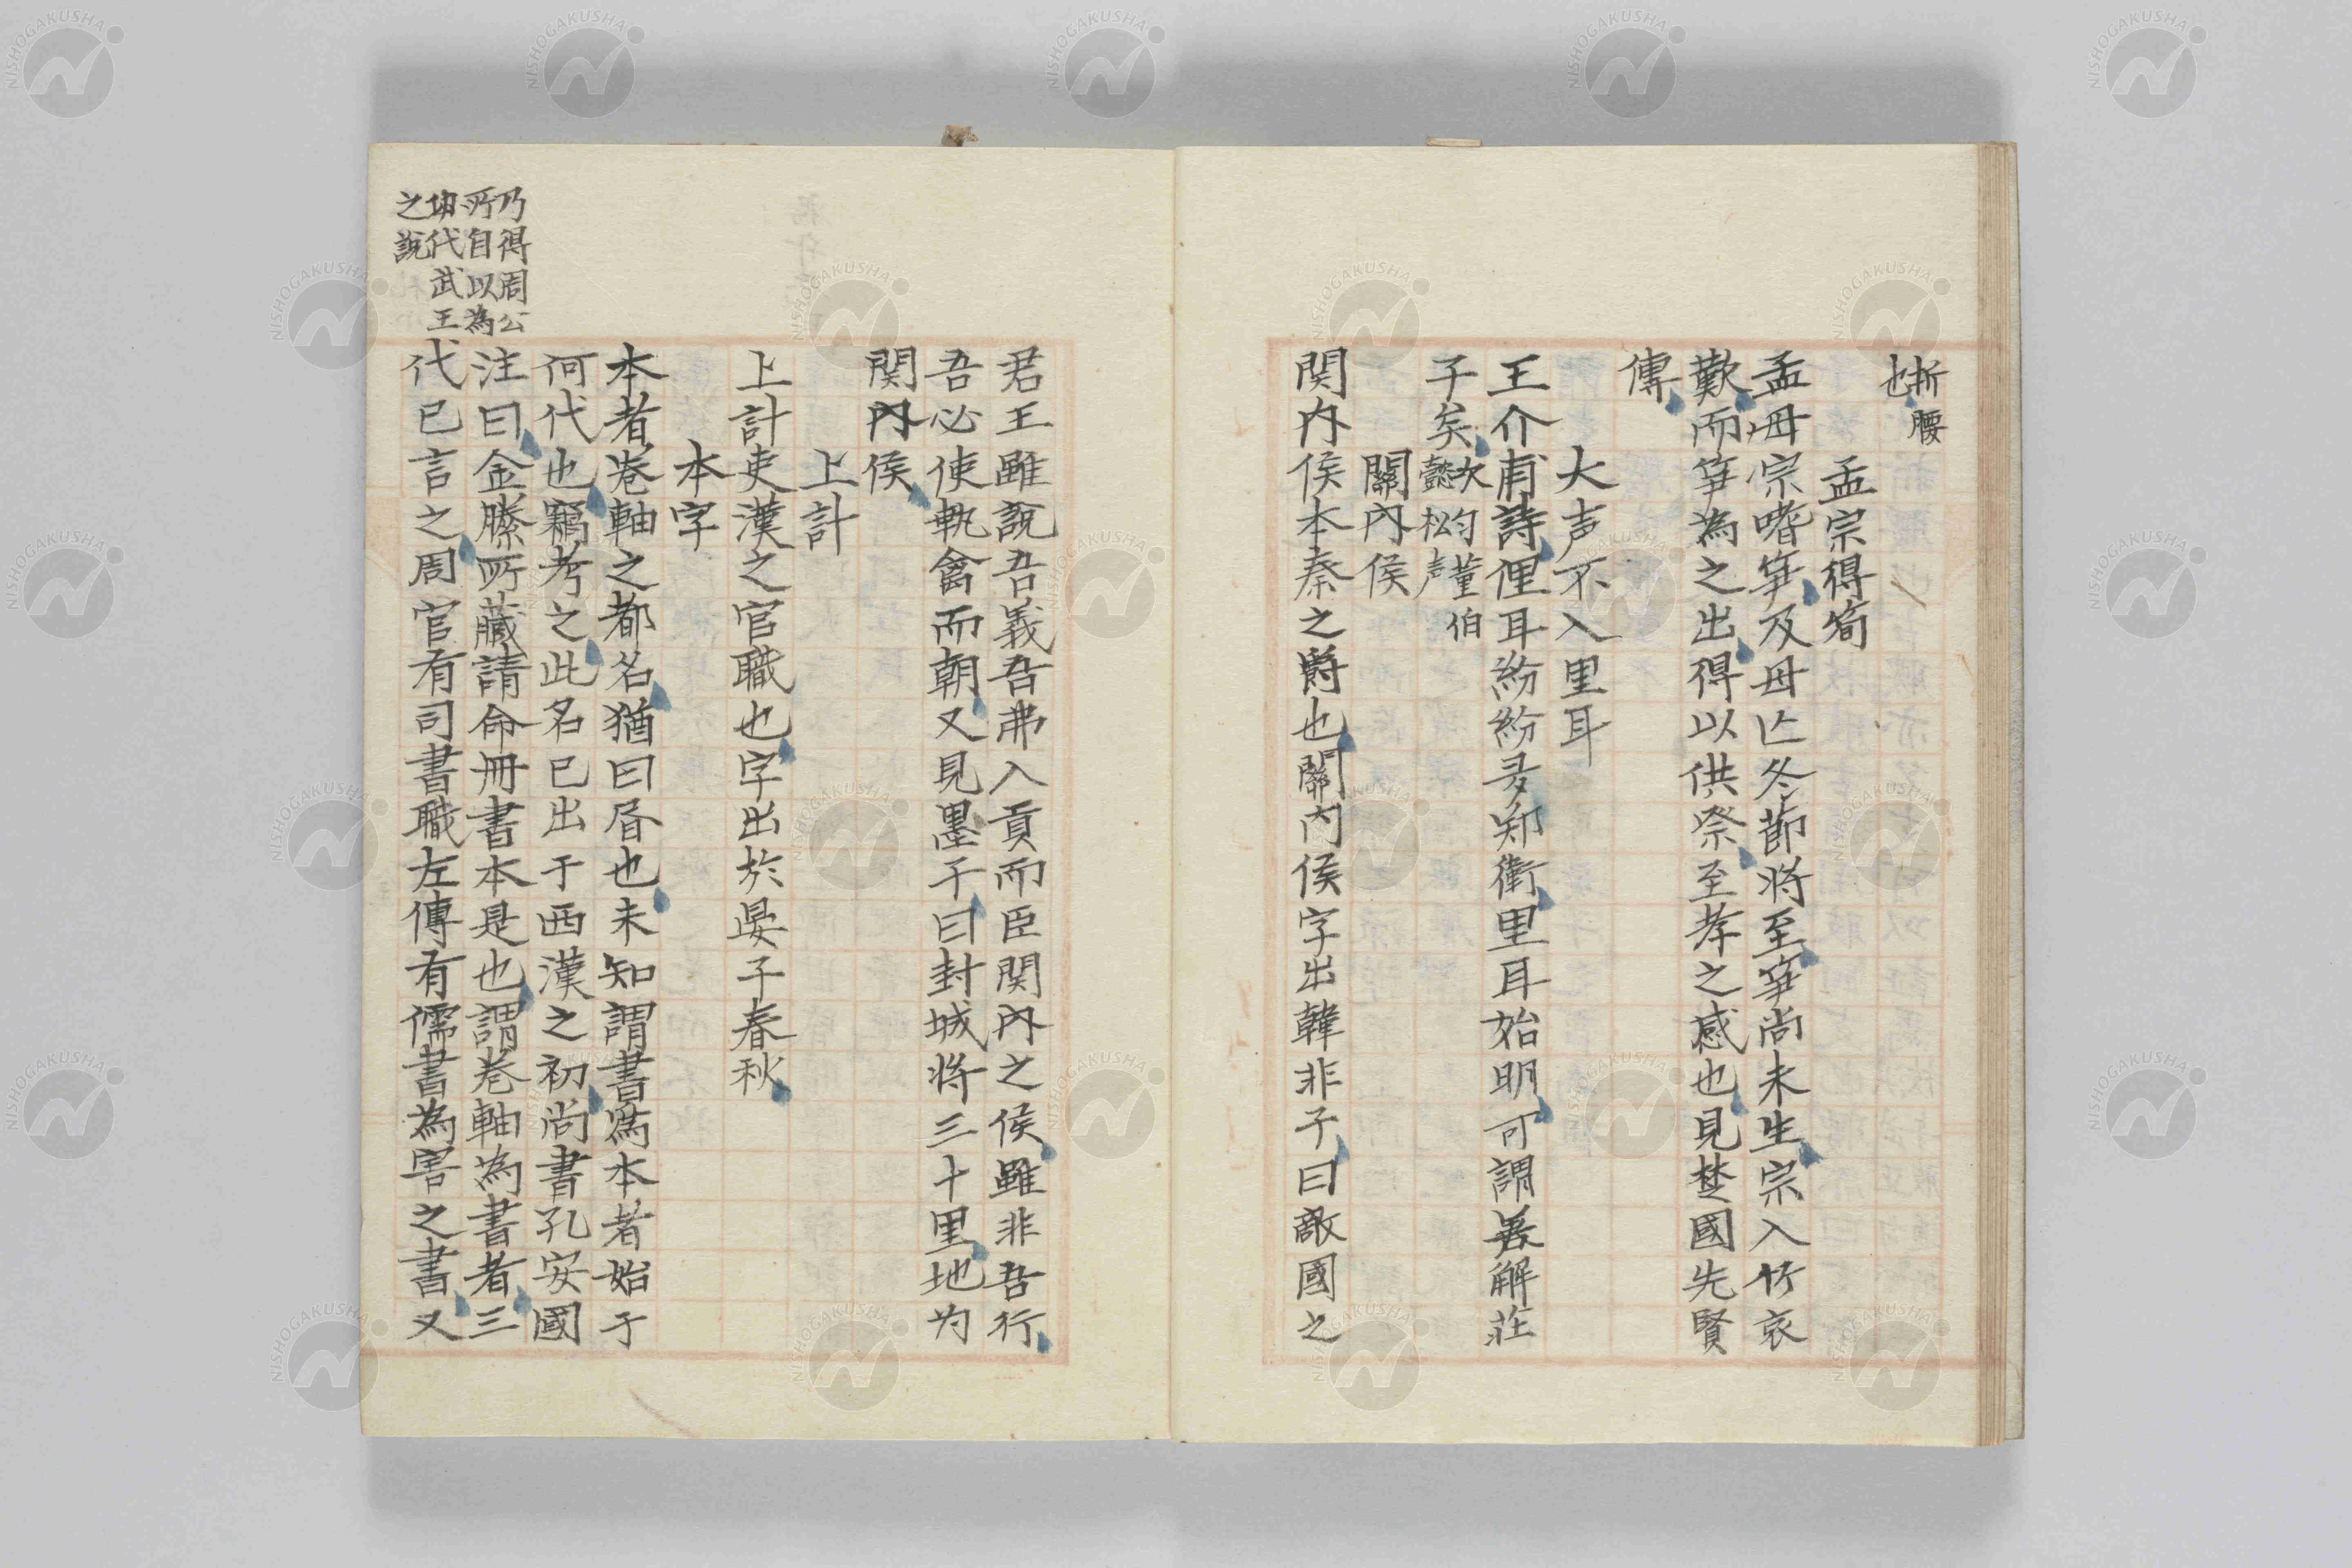 折腰
也
孟宗得筍
孟母宗嗜筭及母亡冬節將至筭尚未生宗入竹哀
歎而筭為之出得以供祭至孝之感也見楚國先賢
傳
大声不入里耳
王介甫詩俚耳紛紛多郑衛里耳始明可謂善解莊
子矣
次匀董伯
懿松声
關內侯
関内侯本秦之爵也關内侯字出韓非子曰敵國之
君王雖説吾義吾弗入貢而臣関内之侯雖非吾行
吾必使執禽而朝又見墨子曰封城将三十里地为
関内侯
上計
上計吏漢之官職也字出於晏子春秋
本字
本者卷軸之都名猶曰層也未知謂書為本者始于
何代也竊考之此名已出于西漢之初尚書孔安國
注曰金縢所藏請命冊書本是也謂卷軸為書者三
代已言之周官有司書職左傳有儒書為害之書又
乃得周公
所自以為
功代武王
之説
NISHOGAKUSHA